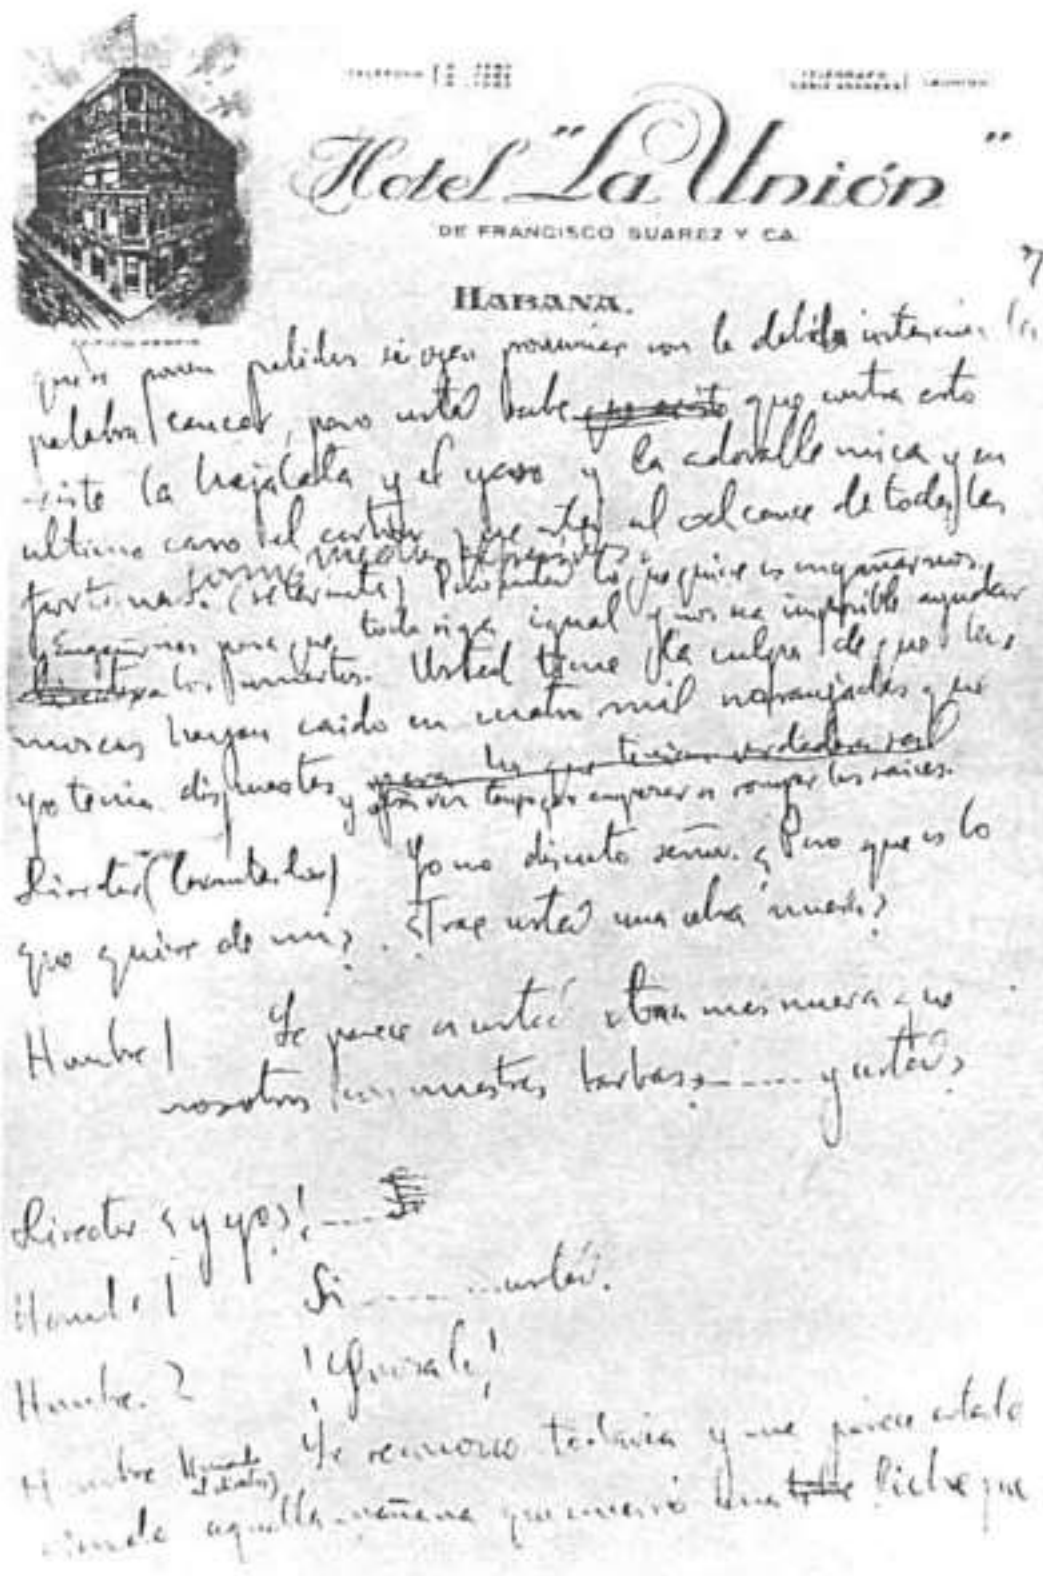 Hotel "La Unión"
DE FRANCISCO SUAREZ Y CA.
HABANA.
que se ponen palidas si oyen pronunciar con la debida intencion la
palabra cancer, pero usted sabe que contra esto
existe la hojalata y el yeso y la adorable mica y en
ultimo caso el carton que estan al alcance de todas las
fortunas como medios expresivos.
(se levanta) Pero usted lo que quiere es engañarnos.
Engañarnos para que todo siga igual y nos sea imposible ayudar
a los muertos. Usted tiene la culpa de que las
moscas hayan caido en cuatro mil naranjadas que
yo tenia dispuestas y otra vez tengo que empezar a romper las raices.
Director (levantandose) Yo no discuto señor. ¿Pero que es lo
que quiere de mi? ¿Trae usted una obra nueva?
Hombre 1 Le parece a usted obra mas nueva que
nosotros con nuestras barbas? ...... y usted?
Director ¿y yo? !......
Hombre 1 Si ........ usted.
Hombre 2 !Gonzalo!
Hombre Le reconozco todavia y me parece estarlo
viendo aquella mañana que encerró una liebre que